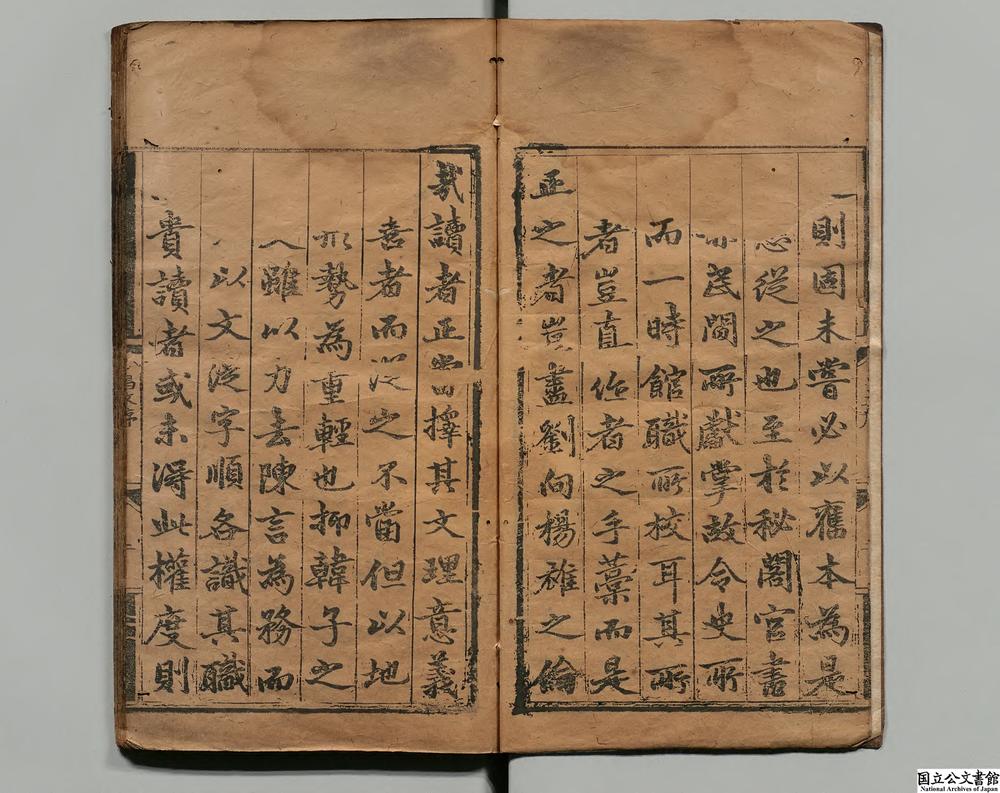 則固未嘗必以舊本為是
從之也至於秘閣官書
民間所獻掌故令史所
而一時館職所校耳其所
者豈直作者之手藁而是
正之者豈盡劉向楊雄之倫
哉讀者正當擇其文理意義
善者而從之不當但以地
形勢為重輕也抑韓子之
雖以力去陳言為務而
以文從字順各識其職
貴讀者或未得此權度則
国立公文書館
National Archives of Japan